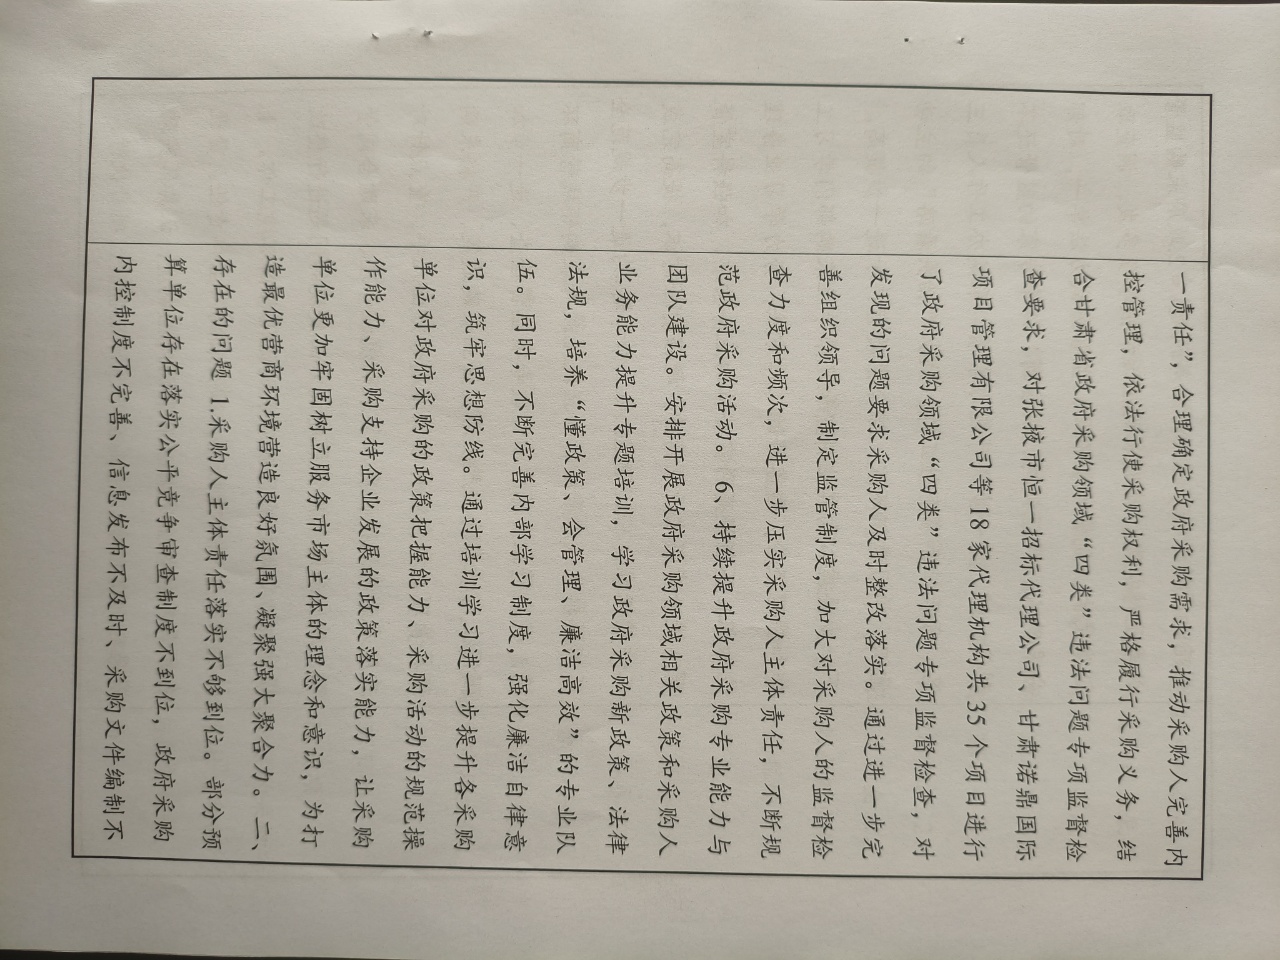 一责任”，合理确定政府采购需求，推动采购人完善内
控管理，依法行使采购权利，严格履行采购义务，结
合甘肃省政府采购领域“四类”违法问题专项监督检
查要求，对张掖市恒一招标代理公司、甘肃诺鼎国际
项目管理有限公司等 18 家代理机构共 35 个项目进行
了政府采购领域“四类”违法问题专项监督检查，对
发现的问题要求采购人及时整改落实。通过进一步完
善组织领导，制定监管制度，加大对采购人的监督检
查力度和频次，进一步压实采购人主体责任，不断规
范政府采购活动。 6、持续提升政府采购专业能力与
团队建设。安排开展政府采购领域相关政策和采购人
业务能力提升专题培训，学习政府采购新政策、法律
法规，培养“懂政策、会管理、廉洁高效”的专业队
伍。同时，不断完善内部学习制度，强化廉洁自律意
识，筑牢思想防线。通过培训学习进一步提升各采购
单位对政府采购的政策把握能力、采购活动的规范操
作能力、采购支持企业发展的政策落实能力，让采购
单位更加牢固树立服务市场主体的理念和意识，为打
造最优营商环境营造良好氛围、凝聚强大聚合力。二、
存在的问题 1.采购人主体责任落实不够到位。部分预
算单位存在落实公平竞争审查制度不到位，政府采购
内控制度不完善、信息发布不及时、采购文件编制不